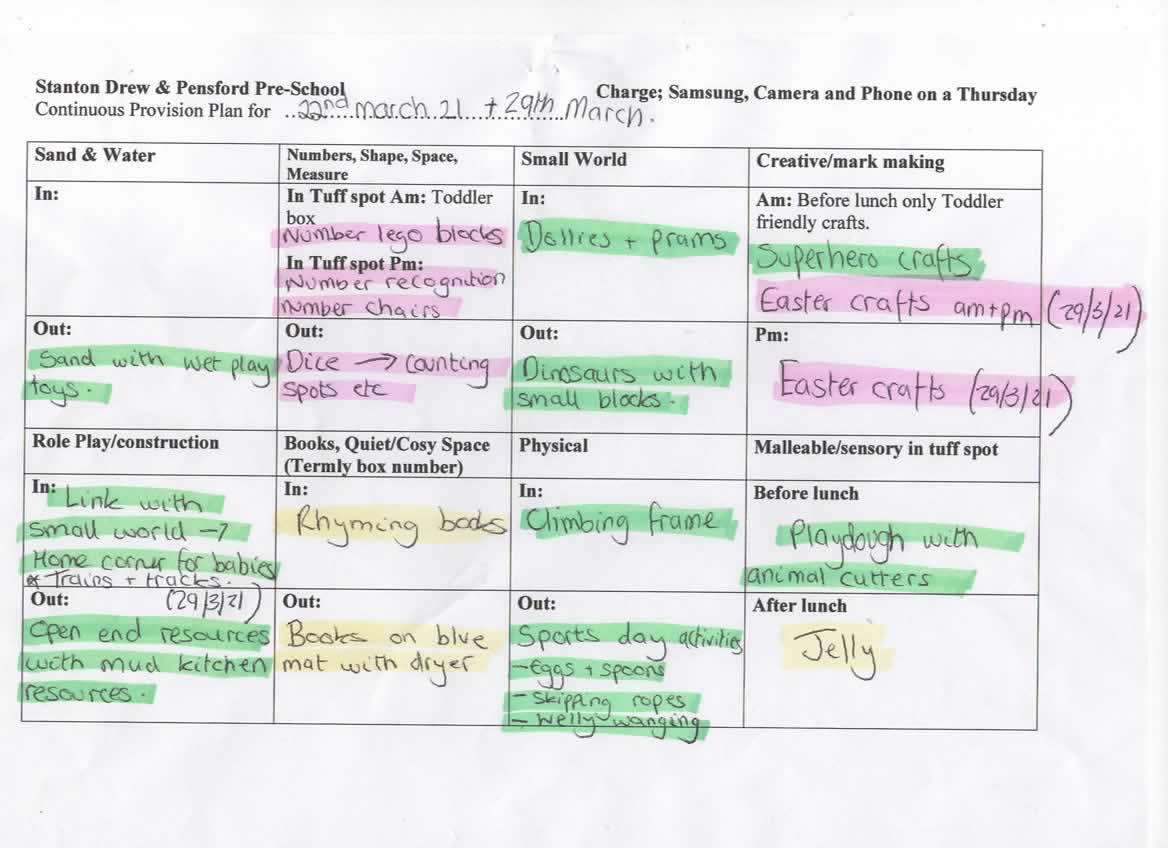 Stanton Drew & Pensford Pre-School
Charge; Samsung, Camera and Phone on a Thursday
Continuous Provision Plan for ..22nd march 21 + 29th March.
Sand & Water
Numbers, Shape, Space,
Measure
Small World
Creative/mark making
In:
In Tuff spot Am: Toddler
box
Number lego blocks
In Tuff spot Pm:
Number recognition
number chairs
In:
Dollies + prams
Am: Before lunch only Toddler
friendly crafts.
Superhero crafts
Easter crafts am+pm (29/3/21)
Out:
Sand with wet play
toys.
Out:
Dice → counting
spots etc
Out:
Dinosaurs with
small blocks.
Pm:
Easter crafts (29/3/21)
Role Play/construction
Books, Quiet/Cosy Space
(Termly box number)
Physical
Malleable/sensory in tuff spot
In: Link with
small world →
Home corner for babies
* Trains + tracks.
(29/3/21)
In:
Rhyming books
In:
Climbing frame
Before lunch
Playdough with
animal cutters
Out:
Open end resources
with mud kitchen
resources.
Out:
Books on blue
mat with dryer
Out:
Sports day activities
- Eggs + spoons
- Skipping ropes
- Welly wanging
After lunch
Jelly